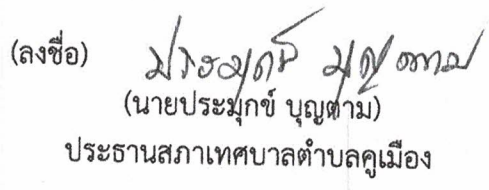 (ลงชื่อ) ประมุกข์ บุญตาม
(นายประมุกข์ บุญตาม)
ประธานสภาเทศบาลตำบลคูเมือง